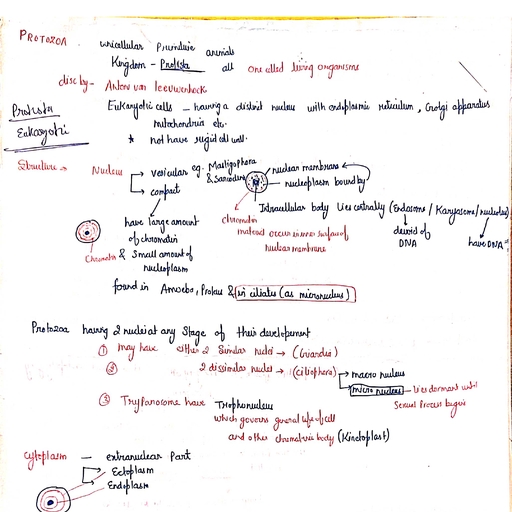 PROTOZOA
unicellular Primitive animals
Kingdom - Protista all one celled living organisms
disc by - Anton van Leeuwenhoek
Protista
Eukaryotic
Eukaryotic cells - having a distinct nucleus with endoplasmic reticulum, Golgi apparatus
mitochondria etc.
* not have rigid cell wall.
Structure → Nucleus → vesicular eg. Mastigophora & Sarcodina
→ compact
nuclear membrane
nucleoplasm bound by
Intracellular body lies centrally (Endosome / Karyosome / nucleolus)
devoid of DNA
have DNA
chromatin
material occur in inner surface of
nuclear membrane
have large amount
of chromatin
& Small amount of
nucleoplasm
Chromatin
found in Amoeba, Proteus & (in ciliates (as micronucleus)
Protozoa having 2 nuclei at any stage of their development
① may have either 2 Similar nuclei → (Giardia)
② 2 dissimilar nuclei → (ciliophora) → macro nucleus
micro nucleus - lies dormant until
Sexual Process begin
③ Trypanosome have Trophonucleus
which governs general life of cell
and other chromatic body (Kinetoplast)
cytoplasm - extranuclear Part
→ Ectoplasm
→ Endoplasm